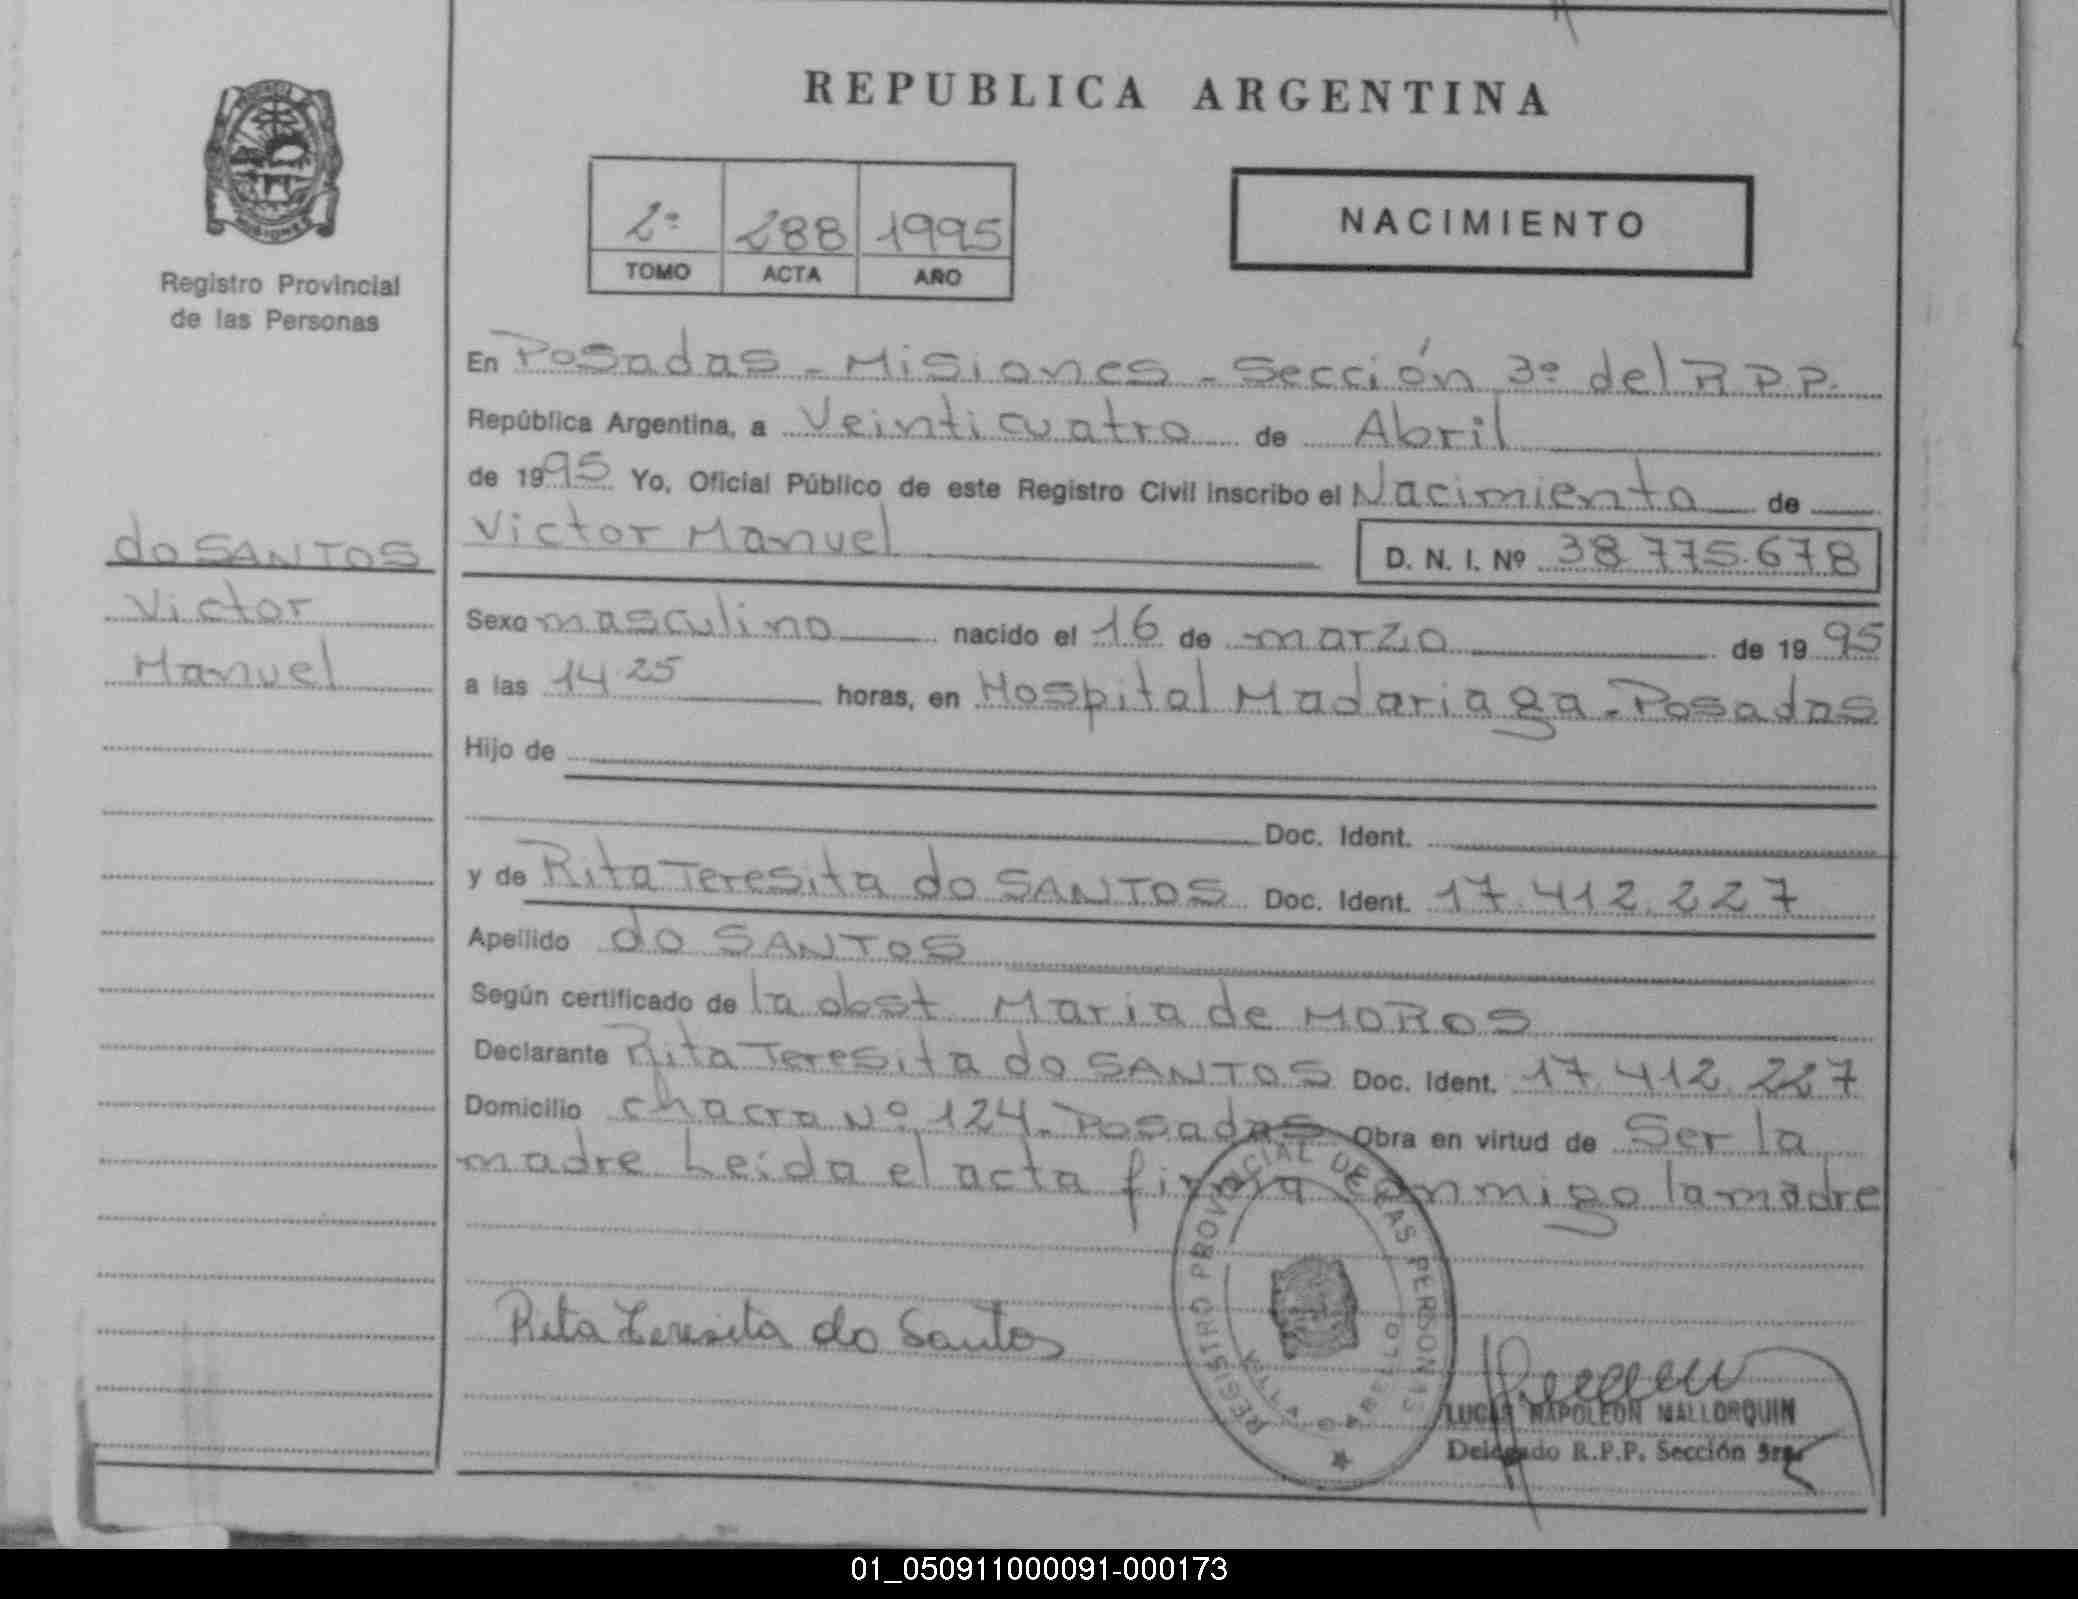 REPUBLICA ARGENTINA
2º 288 1995
TOMO ACTA AÑO
NACIMIENTO
Registro Provincial
de las Personas
do SANTOS
Victor
Manuel
En Posadas - Misiones - Sección 3º del R.P.P.
República Argentina, a Veinticuatro de Abril
de 1995 Yo, Oficial Público de este Registro Civil inscribo el Nacimiento de
Victor Manuel D. N. I. Nº 38.775.678
Sexo masculino nacido el 16 de marzo de 1995
a las 14.25 horas, en Hospital Madariaga - Posadas
Hijo de
Doc. Ident.
y de Rita Teresita do SANTOS Doc. Ident. 17.412.227
Apellido do SANTOS
Según certificado de la obst. Maria de MOROS
Declarante Rita Teresita do SANTOS Doc. Ident. 17.412.227
Domicilio chacra Nº 124 - Posadas Obra en virtud de Ser la
madre Leida el acta firma conmigo la madre
REGISTRO PROVINCIAL DE LAS PERSONAS
Rita Teresita do Santos
LUCAS NAPOLEON MALLORQUIN
Delegado R.P.P. Sección 3ra
01_050911000091-000173